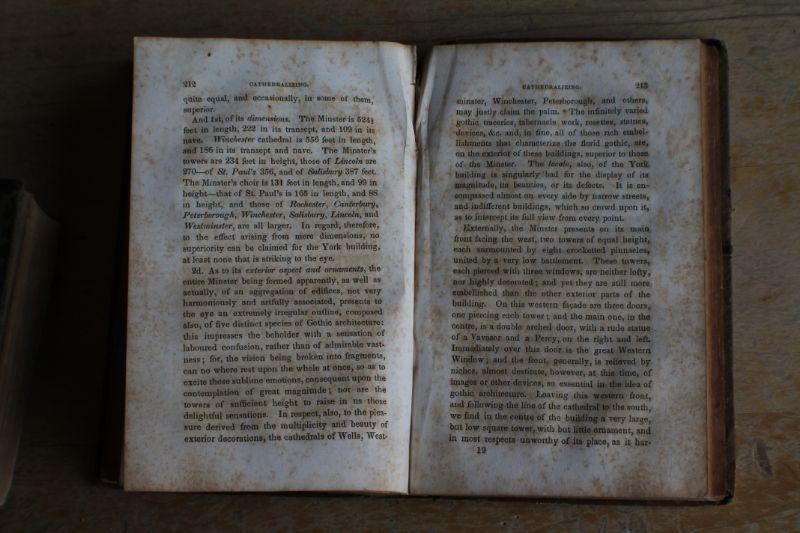 212 CATHEDRALIZING.
quite equal, and occasionally, in some of them,
superior.
And 1st, of its dimensions. The Minster is 524½
feet in length, 222 in its transept, and 109 in its
nave. Winchester cathedral is 556 feet in length,
and 186 in its transept and nave. The Minster's
towers are 234 feet in height, those of Lincoln are
270—of St. Paul's 356, and of Salisbury 387 feet.
The Minster's choir is 131 feet in length, and 99 in
height—that of St. Paul's is 165 in length, and 88
in height, and those of Rochester, Canterbury,
Peterborough, Winchester, Salisbury, Lincoln, and
Westminster, are all larger. In regard, therefore,
to the effect arising from mere dimensions, no
superiority can be claimed for the York building,
at least none that is striking to the eye.
2d. As to its exterior aspect and ornaments, the
entire Minster being formed apparently, as well as
actually, of an aggregation of edifices, not very
harmoniously and artfully associated, presents to
the eye an extremely irregular outline, composed
also, of five distinct species of Gothic architecture:
this impresses the beholder with a sensation of
laboured confusion, rather than of admirable vast-
ness; for, the vision being broken into fragments,
can no where rest upon the whole at once, so as to
excite those sublime emotions, consequent upon the
contemplation of great magnitude; nor are the
towers of sufficient height to raise in us those
delightful sensations. In respect, also, to the plea-
sure derived from the multiplicity and beauty of
exterior decorations, the cathedrals of Wells, West-
CATHEDRALIZING. 213
minster, Winchester, Peterborough, and others,
may justly claim the palm. The infinitely varied
gothic traceries, tabernacle work, rosettes, statues,
devices, &c. and, in fine, all of those rich embel-
lishments that characterize the florid gothic, are,
on the exterior of these buildings, superior to those
of the Minster. The locale, also, of the York
building is singularly bad for the display of its
magnitude, its beauties, or its defects. It is en-
compassed almost on every side by narrow streets,
and indifferent buildings, which so crowd upon it,
as to intercept its full view from every point.
Externally, the Minster presents on its main
front facing the west, two towers of equal height,
each surmounted by eight crocketted pinnacles,
united by a very low battlement. These towers,
each pierced with three windows, are neither lofty,
nor highly decorated; and yet they are still more
embellished than the other exterior parts of the
building. On this western façade are three doors,
one piercing each tower; and the main one, in the
centre, is a double arched door, with a rude statue
of a Vavasor and a Percy, on the right and left.
Immediately over this door is the great Western
Window; and the front, generally, is relieved by
niches, almost destitute, however, at this time, of
images or other devices, so essential in the idea of
gothic architecture. Leaving this western front,
and following the line of the cathedral to the south,
we find in the centre of the building a very large,
but low square tower, with but little ornament, and
in most respects unworthy of its place, as it har-
19